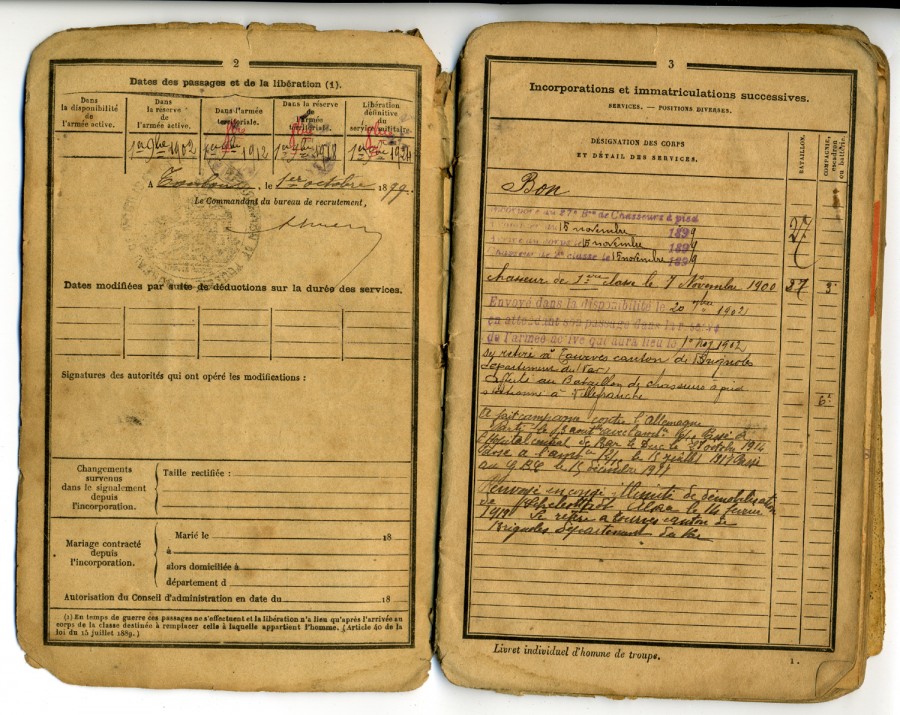 2
Dates des passages et de la libération (1).
Dans la disponibilité de l'armée active.
Dans la réserve de l'armée active.
Dans l'armée territoriale.
Dans la réserve de l'armée territoriale.
Libération définitive du service militaire.
1er 9bre 1902
1912
1918
1924
A Toulon, le 1er octobre 1899.
Le Commandant du bureau de recrutement,
Dates modifiées par suite de déductions sur la durée des services.
Signatures des autorités qui ont opéré les modifications :
Changements survenus dans le signalement depuis l'incorporation.
Taille rectifiée :
Mariage contracté depuis l'incorporation.
Marié le 18
à
alors domiciliée à
département d
Autorisation du Conseil d'administration en date du 18
(1) En temps de guerre ces passages ne s'effectuent et la libération n'a lieu qu'après l'arrivée au
corps de la classe destinée à remplacer celle à laquelle appartient l'homme. (Article 40 de la
loi du 15 juillet 1889.)
3
Incorporations et immatriculations successives.
SERVICES. — POSITIONS DIVERSES.
DÉSIGNATION DES CORPS
ET DÉTAIL DES SERVICES.
BATAILLON.
COMPAGNIE, escadron ou batterie.
Bon
27e Bon de Chasseurs à pied
15 novembre 1899
15 novembre 1899
classe le 15 novembre 1899
27
chasseur de 1ère classe le 7 Novembre 1900 27 3e
Envoyé dans la disponibilité le 20 1902
en attendant son passage dans la réserve
de l'armée active qui aura lieu le 1er Nov 1902
se retire à Tourves canton de Brignoles
département du Var
Affecté au Bataillon de chasseurs à pied
stationné à Villefranche
6e
A fait campagne contre l'Allemagne
Parti le 13 août Passé à
l'hôpital central de Bar le Duc le octobre 1914
Passé à le 15 juillet 1917 Passé
au le 15 décembre 1917
Renvoyé en congé illimité de démobilisation
de Alsace le 14 février
1919 Se retire à Tourves canton de
Brignoles département du Var
Livret individuel d'homme de troupe.
1.